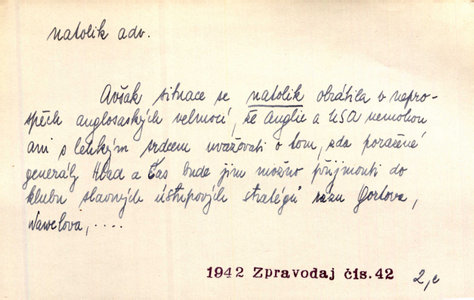 natolik adv.
Avšak situace se natolik obrátila v nepro-
spěch anglosaských velmocí, že Anglie a USA nemohou
ani s lehkým srdcem uvažovati o tom, zda poražené
generály Hlad a Čas bude jim možno přijmouti do
klubu slavných ústupových stratégů rázu Gortova,
Wawelova, ....
1942 Zpravodaj čís.42
2,c